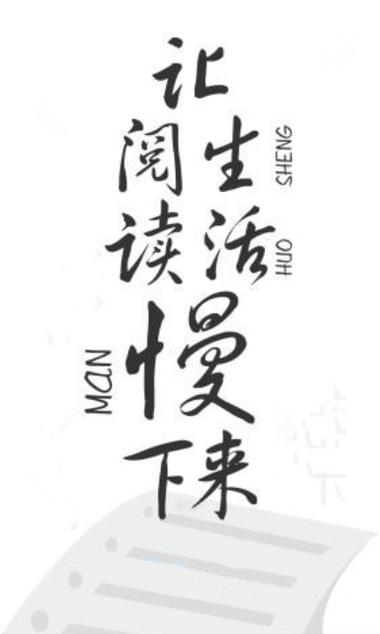 让
阅读
生活
SHENG
HUO
慢
MAN
下来